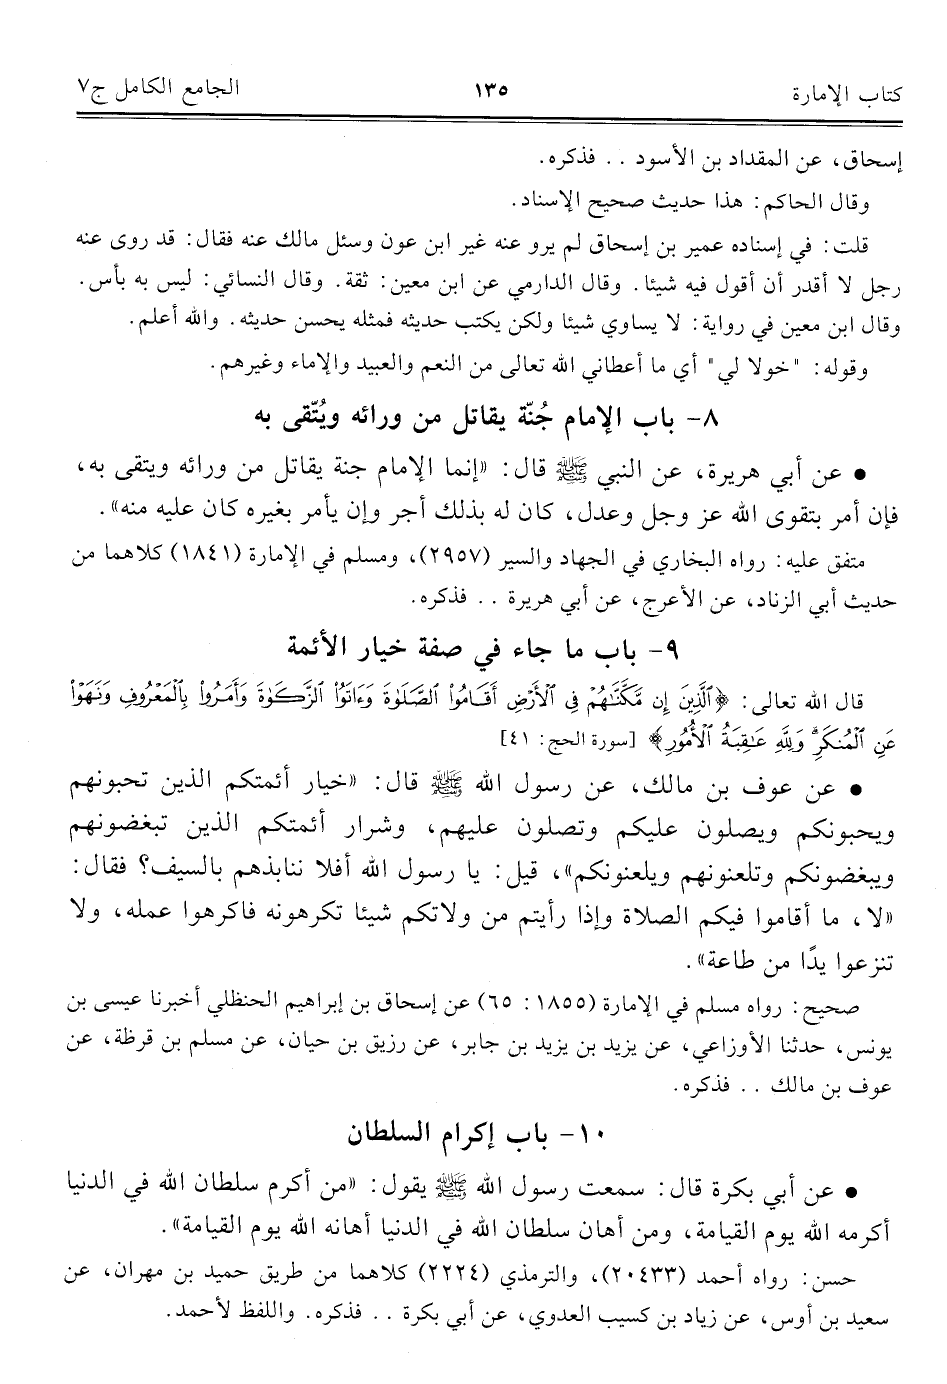 كتاب الإمارة ١٣٥ الجامع الكامل ج٧
إسحاق، عن المقداد بن الأسود .. فذكره.
وقال الحاكم: هذا حديث صحيح الإسناد.
قلت: في إسناده عمير بن إسحاق لم يرو عنه غير ابن عون وسئل مالك عنه فقال: قد روى عنه
رجل لا أقدر أن أقول فيه شيئا. وقال الدارمي عن ابن معين: ثقة. وقال النسائي: ليس به بأس.
وقال ابن معين في رواية: لا يساوي شيئا ولكن يكتب حديثه فمثله يحسن حديثه. والله أعلم.
وقوله: "خولا لي" أي ما أعطاني الله تعالى من النعم والعبيد والإماء وغيرهم.
٨- باب الإمام جُنّة يقاتل من ورائه ويُتّقى به
• عن أبي هريرة، عن النبي ﷺ قال: «إنما الإمام جنة يقاتل من ورائه ويتقى به،
فإن أمر بتقوى الله عز وجل وعدل، كان له بذلك أجر وإن يأمر بغيره كان عليه منه».
متفق عليه: رواه البخاري في الجهاد والسير (٢٩٥٧)، ومسلم في الإمارة (١٨٤١) كلاهما من
حديث أبي الزناد، عن الأعرج، عن أبي هريرة .. فذكره.
٩- باب ما جاء في صفة خيار الأئمة
قال الله تعالى: ﴿ٱلَّذِينَ إِن مَّكَّنَّٰهُمۡ فِي ٱلۡأَرۡضِ أَقَامُواْ ٱلصَّلَوٰةَ وَءَاتَوُاْ ٱلزَّكَوٰةَ وَأَمَرُواْ بِٱلۡمَعۡرُوفِ وَنَهَوۡاْ
عَنِ ٱلۡمُنكَرِۗ وَلِلَّهِ عَٰقِبَةُ ٱلۡأُمُورِ﴾ [سورة الحج: ٤١]
• عن عوف بن مالك، عن رسول الله ﷺ قال: «خيار أئمتكم الذين تحبونهم
ويحبونكم ويصلون عليكم وتصلون عليهم، وشرار أئمتكم الذين تبغضونهم
ويبغضونكم وتلعنونهم ويلعنونكم»، قيل: يا رسول الله أفلا ننابذهم بالسيف؟ فقال:
«لا، ما أقاموا فيكم الصلاة وإذا رأيتم من ولاتكم شيئا تكرهونه فاكرهوا عمله، ولا
تنزعوا يدًا من طاعة».
صحيح: رواه مسلم في الإمارة (١٨٥٥: ٦٥) عن إسحاق بن إبراهيم الحنظلي أخبرنا عيسى بن
يونس، حدثنا الأوزاعي، عن يزيد بن يزيد بن جابر، عن رزيق بن حيان، عن مسلم بن قرظة، عن
عوف بن مالك .. فذكره.
١٠- باب إكرام السلطان
• عن أبي بكرة قال: سمعت رسول الله ﷺ يقول: «من أكرم سلطان الله في الدنيا
أكرمه الله يوم القيامة، ومن أهان سلطان الله في الدنيا أهانه الله يوم القيامة».
حسن: رواه أحمد (٢٠٤٣٣)، والترمذي (٢٢٢٤) كلاهما من طريق حميد بن مهران، عن
سعيد بن أوس، عن زياد بن كسيب العدوي، عن أبي بكرة .. فذكره. واللفظ لأحمد.